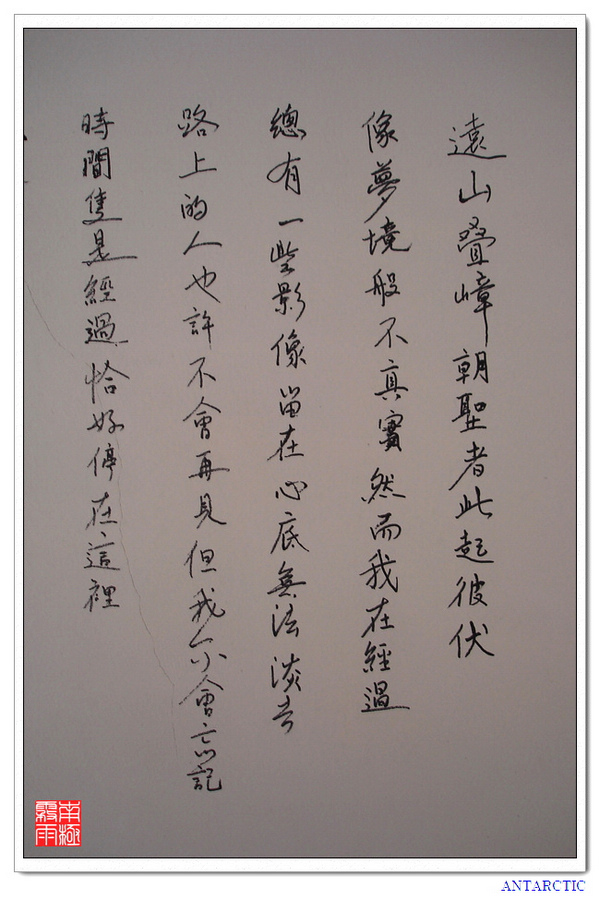 遠山叠嶂朝聖者此起彼伏
像夢境般不真實然而我在經過
總有一些影像留在心底無法淡去
路上的人也許不會再見但我不會忘記
時間隻是經過恰好停在這裡
南極
雨
ANTARCTIC